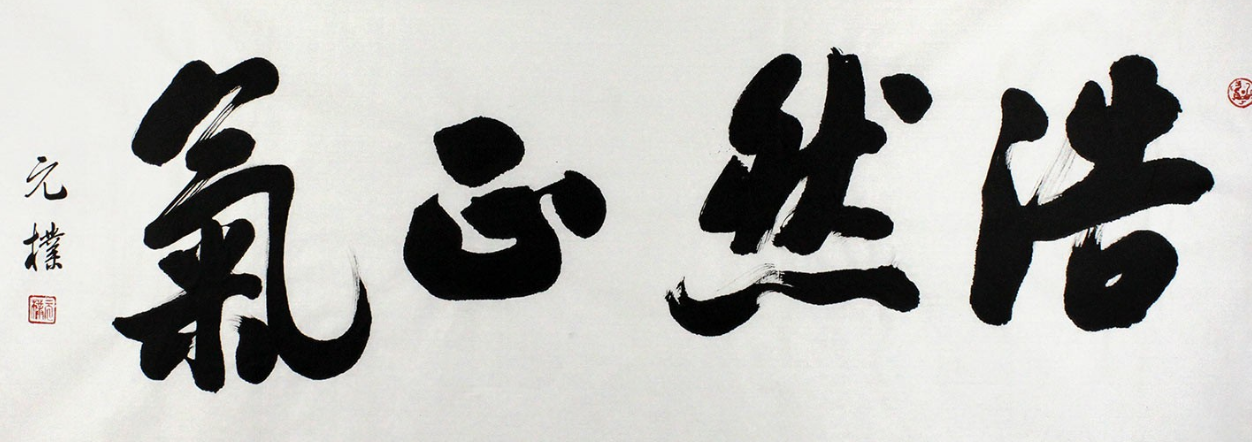 浩然正氣
元樸